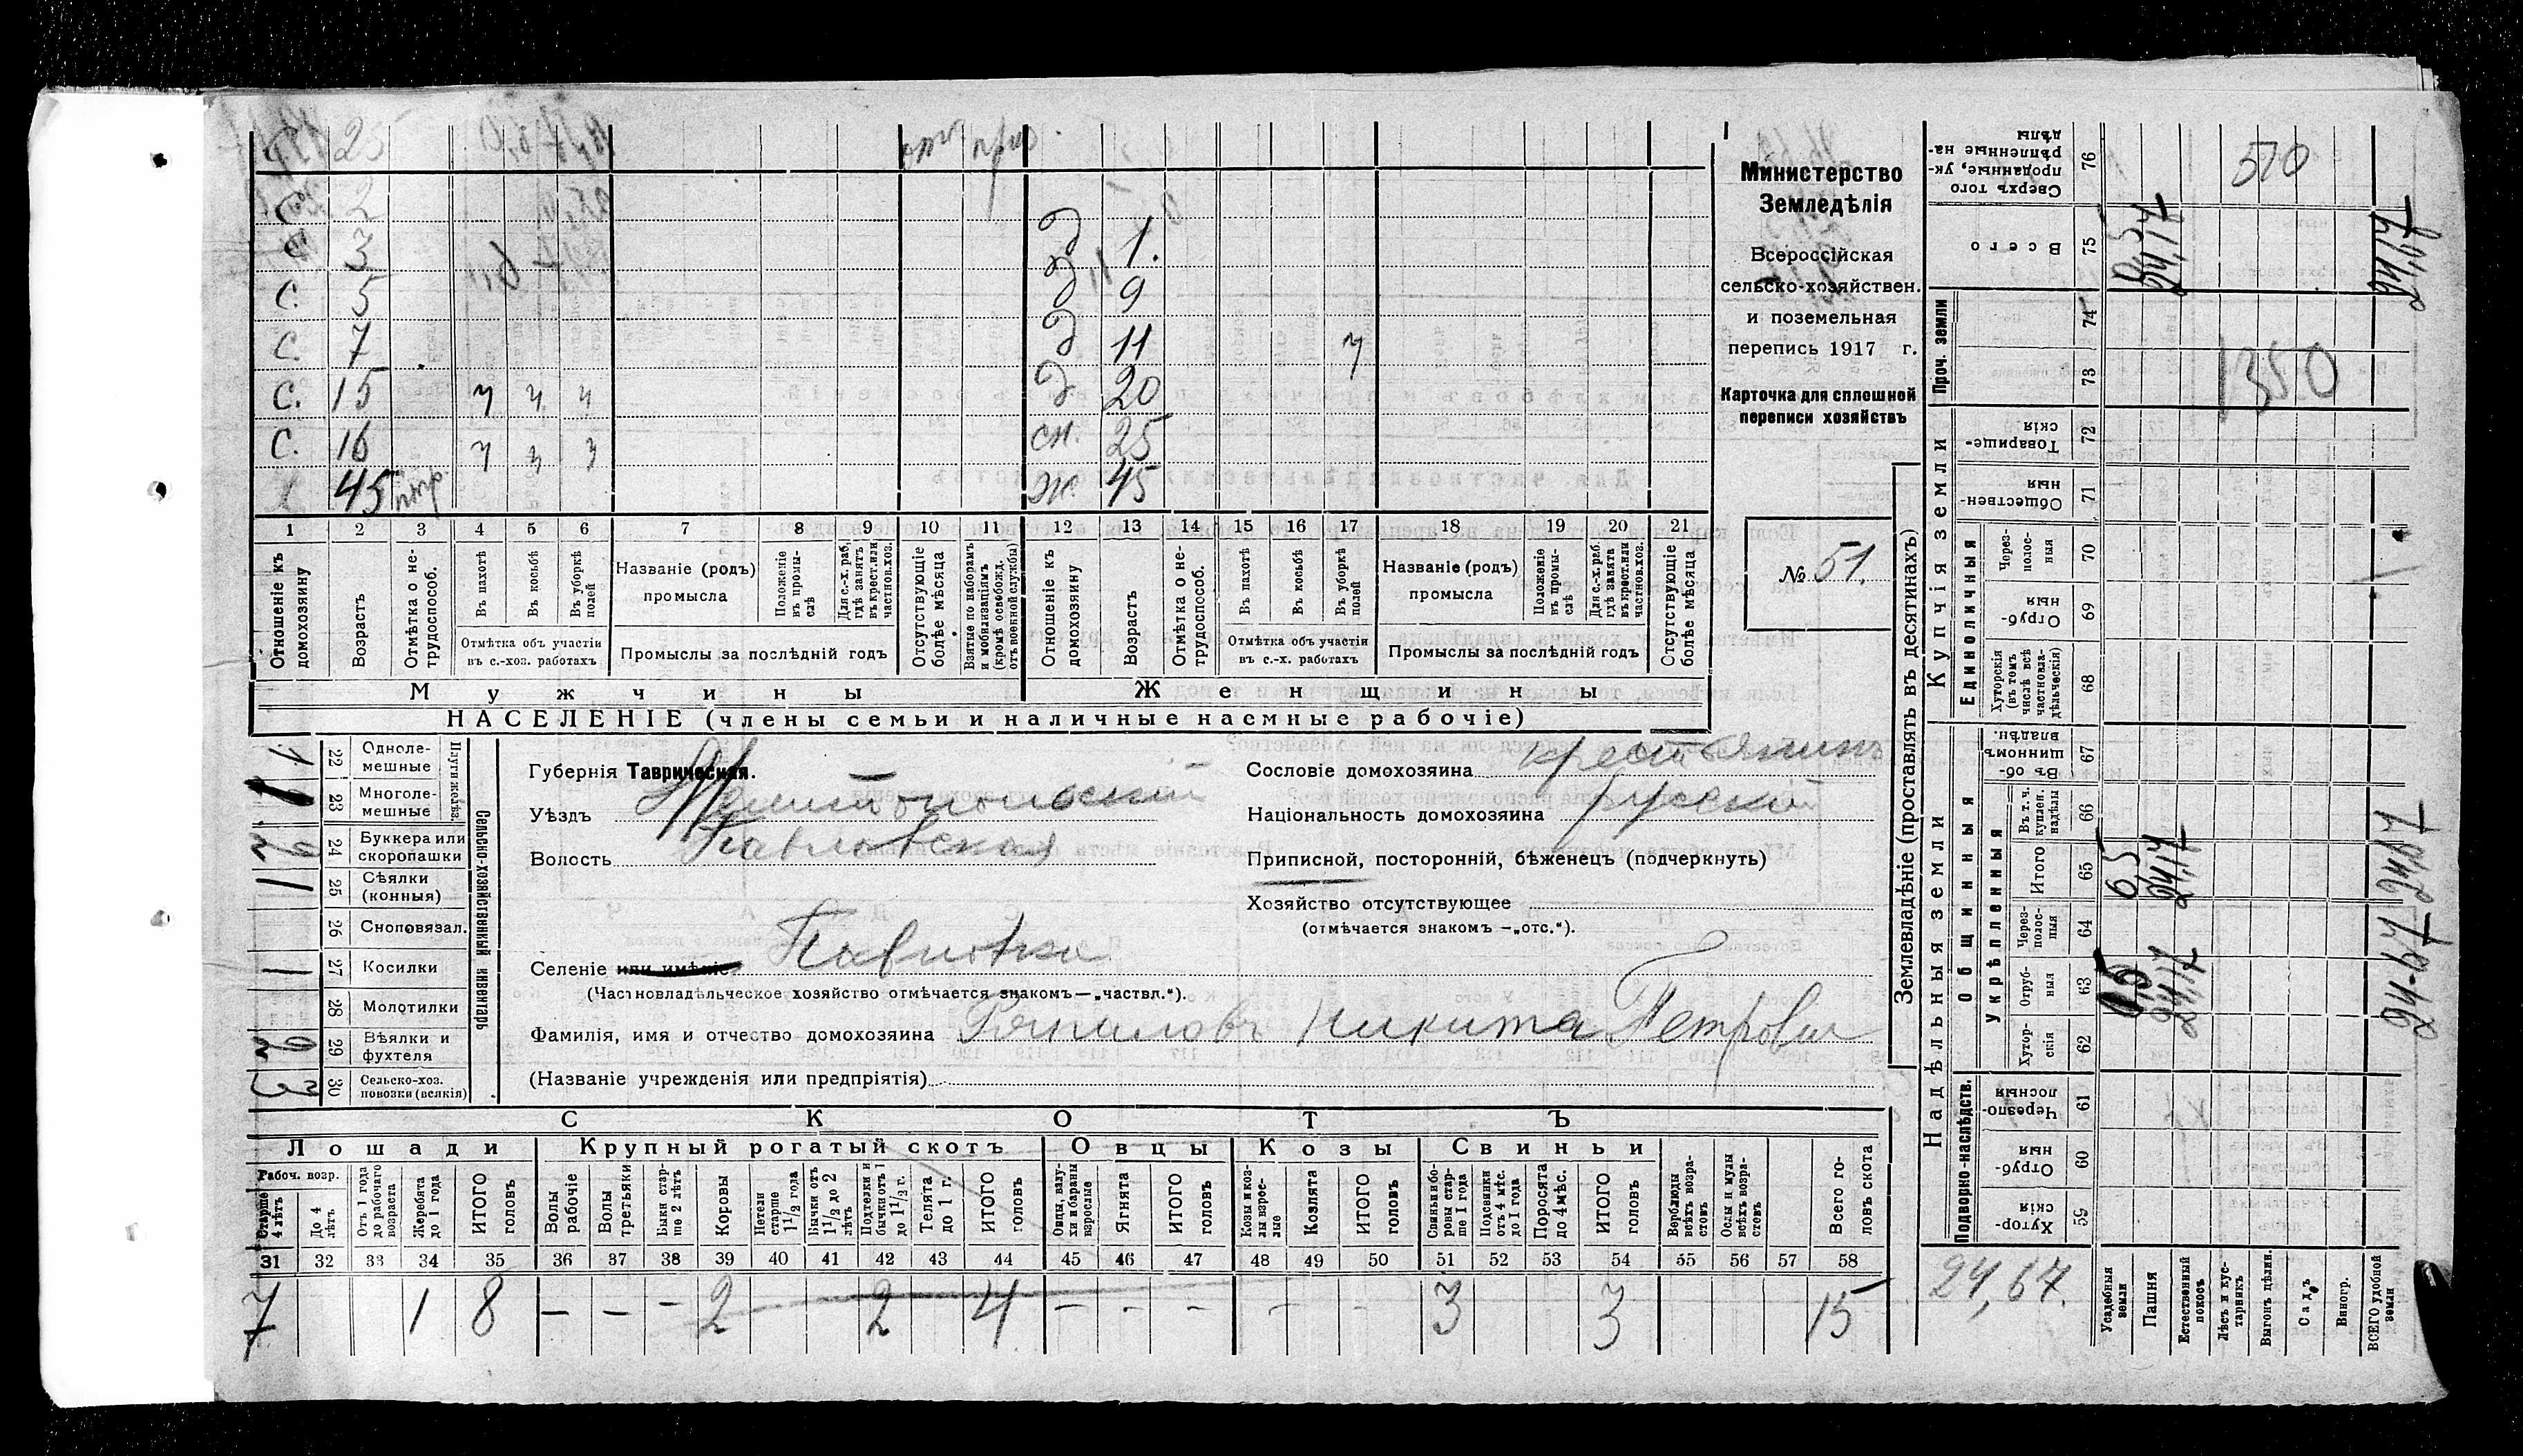 С 25
С 2
С 3
С. 5
С. 7
С. 15 ч ч ч
С. 16 ч ч ч
45
д 1.
д 9
д 11 ч
д 20
сн. 25
ж 45
1 2 3 4 5 6 7 8 9 10 11 12 13 14 15 16 17 18 19 20 21
Отношеніе къ домохозяину
Возрастъ
Отмѣтка о нетрудоспособ.
Въ пахотѣ
Въ косьбѣ
Въ уборкѣ полей
Отмѣтка объ участіи
въ с.-хоз. работахъ
Названіе (родъ)
промысла
Положеніе въ промыслѣ
Для с.-х. раб, гдѣ занятъ въ крест. или частнов. хоз.
Промыслы за послѣдній годъ
Отсутствующіе болѣе мѣсяца
Взятые по наборамъ и мобилизаціямъ (кромѣ освобожд. отъ военной службы)
Отношеніе къ домохозяину
Возрастъ
Отмѣтка о нетрудоспособ.
Въ пахотѣ
Въ косьбѣ
Въ уборкѣ полей
Отмѣтка объ участіи
въ с.-х. работахъ
Названіе (родъ)
промысла
Положеніе въ промыслѣ
Для с.-х. раб. гдѣ занята въ крест. или частнов. хоз.
Промыслы за послѣдній годъ
Отсутствующіе болѣе мѣсяца
Мужчины
Женщины
НАСЕЛЕНІЕ (члены семьи и наличные наемные рабочіе)
Министерство
Земледѣлія
Всероссійская
сельско-хозяйствен.
и поземельная
перепись 1917 г.
Карточка для сплошной
переписи хозяйствъ
№ 51.
Сельско-хозяйственный инвентарь
Плуги желѣз.
22 Однолемешные 1
23 Многолемешные
24 Буккера или скоропашки 2
25 Сѣялки (конныя) 1
26 Сноповязал.
27 Косилки 1
28 Молотилки
29 Вѣялки и фухтеля 2
30 Сельско-хоз. повозки (всякія) 3
Губернія Таврическая.
Уѣздъ Мелитопольскій
Волость Павловская
Селеніе или имѣніе Павловка
(Частновладѣльческое хозяйство отмѣчается знакомъ—„частвл.“).
Фамилія, имя и отчество домохозяина Никита Петрович
(Названіе учрежденія или предпріятія)
Сословіе домохозяина крестьянинъ
Національность домохозяина русскій
Приписной, посторонній, бѣженецъ (подчеркнуть)
Хозяйство отсутствующее
(отмѣчается знакомъ —„отс.“).
СКОТЪ
Лошади
Крупный рогатый скотъ
Овцы
Козы
Свиньи
Рабоч. возр.
Старше 4 лѣтъ
До 4 лѣтъ
Отъ 1 года до рабочаго возраста
Жеребята до 1 года
ИТОГО головъ
Волы рабочіе
Волы третьяки
Быки старше 2 лѣтъ
Коровы
Нетели старше 1 1/2 года
Бычки отъ 1 1/2 до 2 лѣтъ
Подтелки и бычки отъ 1 до 1 1/2 г.
Телята до 1 г.
ИТОГО головъ
Овцы, валухи и бараны взрослые
Ягнята
ИТОГО головъ
Козы и козлы взрослые
Козлята
ИТОГО головъ
Свиньи и боровы старше 1 года
Подсвинки отъ 4 мѣс. до 1 года
Поросята до 4 мѣс.
ИТОГО головъ
Верблюды всѣхъ возрастовъ
Ослы и мулы всѣхъ возрастовъ
Всего головъ скота
31 32 33 34 35 36 37 38 39 40 41 42 43 44 45 46 47 48 49 50 51 52 53 54 55 56 57 58
7 1 8 — — — 2 2 4 — — — — — 3 3 15
Землевладѣніе (проставлять въ десятинахъ)
Надѣльныя земли
Купчія земли
Проч. земли
Подворно-наслѣдств.
Общинныя
Укрѣпленныя
Единоличныя
76 Сверхъ того проданные, укрѣпленные надѣлы 510
75 Всего
74
73 1350
72 Товарищескія
71 Общественныя
70 Черезполосныя
69 Отрубныя
68 Хуторскія (въ томъ числѣ всѣ частновладѣльческія)
67 Въ общинномъ владѣн.
66 Въ т. ч. куплен. надѣлы
65 Итого 0,5 24,17 24,67
64 Черезполосныя
63 Отрубныя 24,17 24,67
62 Хуторскія
61 Черезполосныя
60 Отрубныя
59 Хуторскія
24,67.
Усадебныя земли
Пашня
Естественный покосъ
Лѣсъ и кустарникъ
Выгонъ цѣлин.
Садъ
Виногр.
ВСЕГО удобной земли